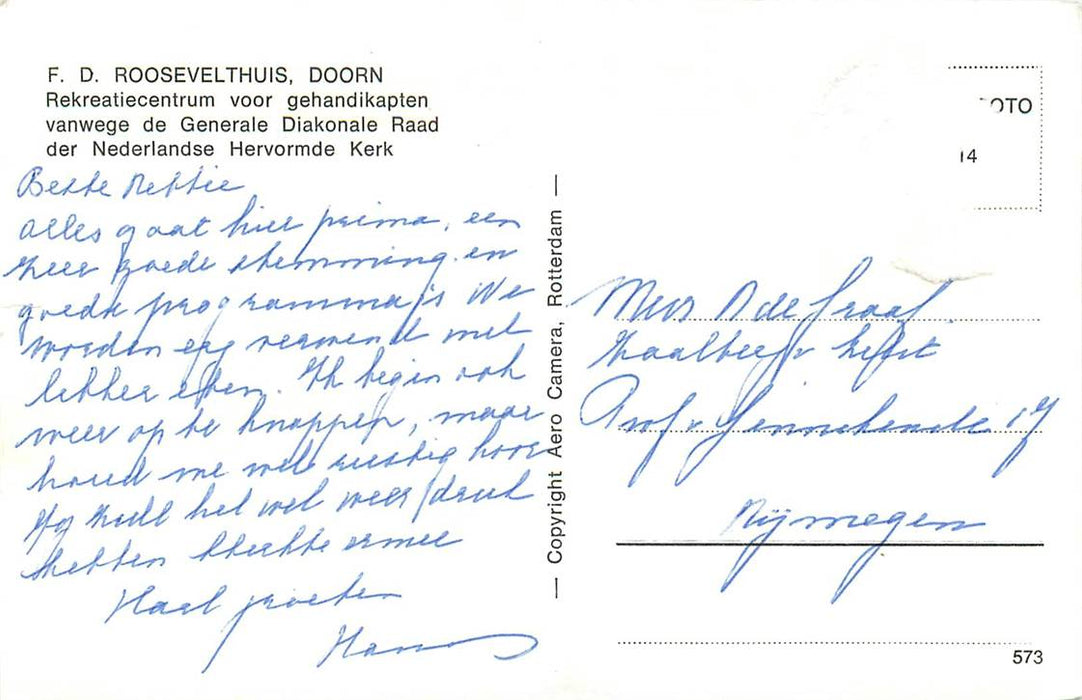 F. D. ROOSEVELTHUIS, DOORN
Rekreatiecentrum voor gehandikapten
vanwege de Generale Diakonale Raad
der Nederlandse Hervormde Kerk
Beste Nettie
alles gaat hier prima, een
zeer goede stemming en
goede programma's We
worden erg verwend met
lekker eten. Ik begin ook
weer op te knappen, maar
houd me wel rustig hoor
Jij zult het wel weer druk
hebben sterkte ermee
Hart groeten
Hans
— Copyright Aero Camera, Rotterdam —
OTO
14
Mevr de Graaf
Prof v
17
Nijmegen
573